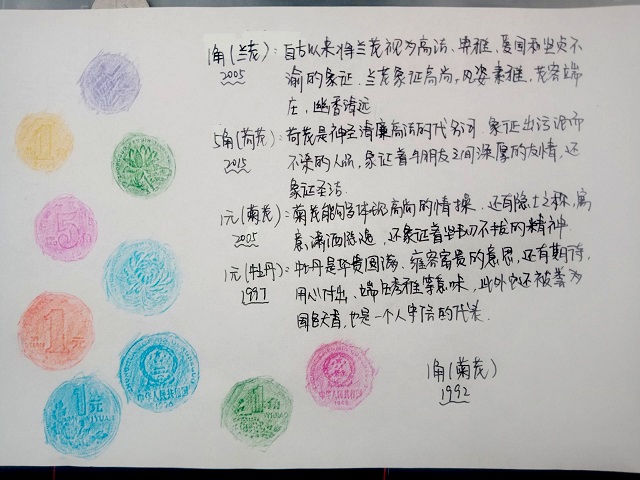 1角(兰花):自古以来将兰花视为高洁、典雅、爱国和坚贞不
2005 渝的象征.兰花象征高尚,风姿素雅,花容端
庄,幽香清远
5角(荷花):荷花是神圣清廉高洁的代名词.象征出污泥而
2015 不染的人品,象征着与朋友之间深厚的友情,还
象征圣洁.
1元(菊花):菊花能够体现高尚的情操.还有隐士之称,寓
2005 意潇洒隐逸,还象征着坚韧不拔的精神
1元(牡丹):牡丹是华贵圆满、雍容富贵的意思,还有期待,
1997 用心付出、端庄秀雅等意味,此外它还被誉为
国色天香,也是一个人守信的代表.
1角(菊花)
1992
1
5
1元
1元
1
中华人民共和国
中华人民共和国